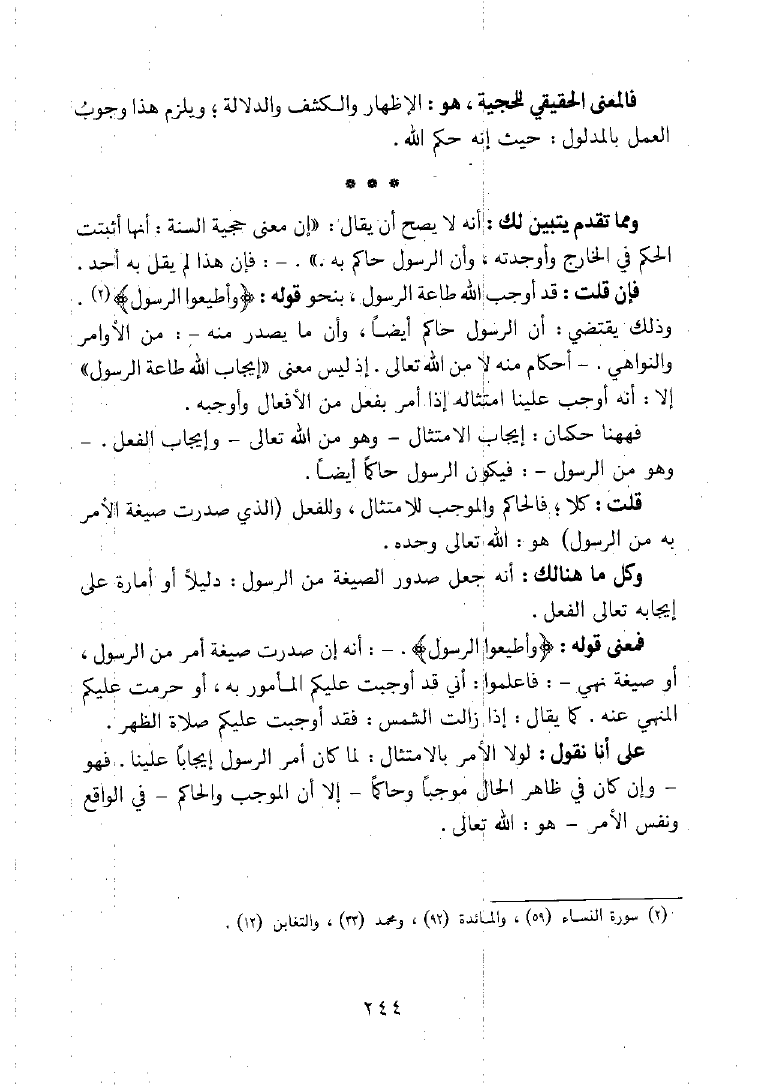 فالمعنى الحقيقي للحجية ، هو : الإظهار والكشف والدلالة ؛ ويلزم هذا وجوبُ
العمل بالمدلول : حيث إنه حكم الله .
* * *
ومما تقدم يتبين لك : أنه لا يصح أن يقال : «إن معنى حجية السنة : أنها أثبتت
الحكم في الخارج وأوجدته ، وأن الرسول حاكم به .» . – : فإن هذا لم يقل به أحد .
فإن قلت : قد أوجب الله طاعة الرسول ، بنحو قوله : ﴿وأطيعوا الرسول﴾ (٢) .
وذلك يقتضي : أن الرسول حاكم أيضاً ، وأن ما يصدر منه – : من الأوامر
والنواهي . – أحكام منه لا من الله تعالى . إذ ليس معنى «إيجاب الله طاعة الرسول»
إلا : أنه أوجب علينا امتثاله إذا أمر بفعل من الأفعال وأوجبه .
فههنا حكمان : إيجاب الامتثال – وهو من الله تعالى – وإيجاب الفعل . –
وهو من الرسول – : فيكون الرسول حاكماً أيضاً .
قلت : كلا ؛ فالحاكم والموجب للامتثال ، وللفعل (الذي صدرت صيغة الأمر
به من الرسول) هو : الله تعالى وحده .
وكل ما هنالك : أنه جعل صدور الصيغة من الرسول : دليلاً أو أمارة على
إيجابه تعالى الفعل .
فمعنى قوله : ﴿وأطيعوا الرسول﴾ . – : أنه إن صدرت صيغة أمر من الرسول ،
أو صيغة نهي – : فاعلموا : أني قد أوجبت عليكم المأمور به ، أو حرمت عليكم
المنهي عنه . كما يقال : إذا زالت الشمس : فقد أوجبت عليكم صلاة الظهر .
على أنا نقول : لولا الأمر بالامتثال : لما كان أمر الرسول إيجاباً علينا . فهو
– وإن كان في ظاهر الحال موجباً وحاكماً – إلا أن الموجب والحاكم – في الواقع
ونفس الأمر – هو : الله تعالى .
(٢) سورة النساء (٥٩) ، والمائدة (٩٢) ، ومحمد (٣٣) ، والتغابن (١٢) .
٢٤٤